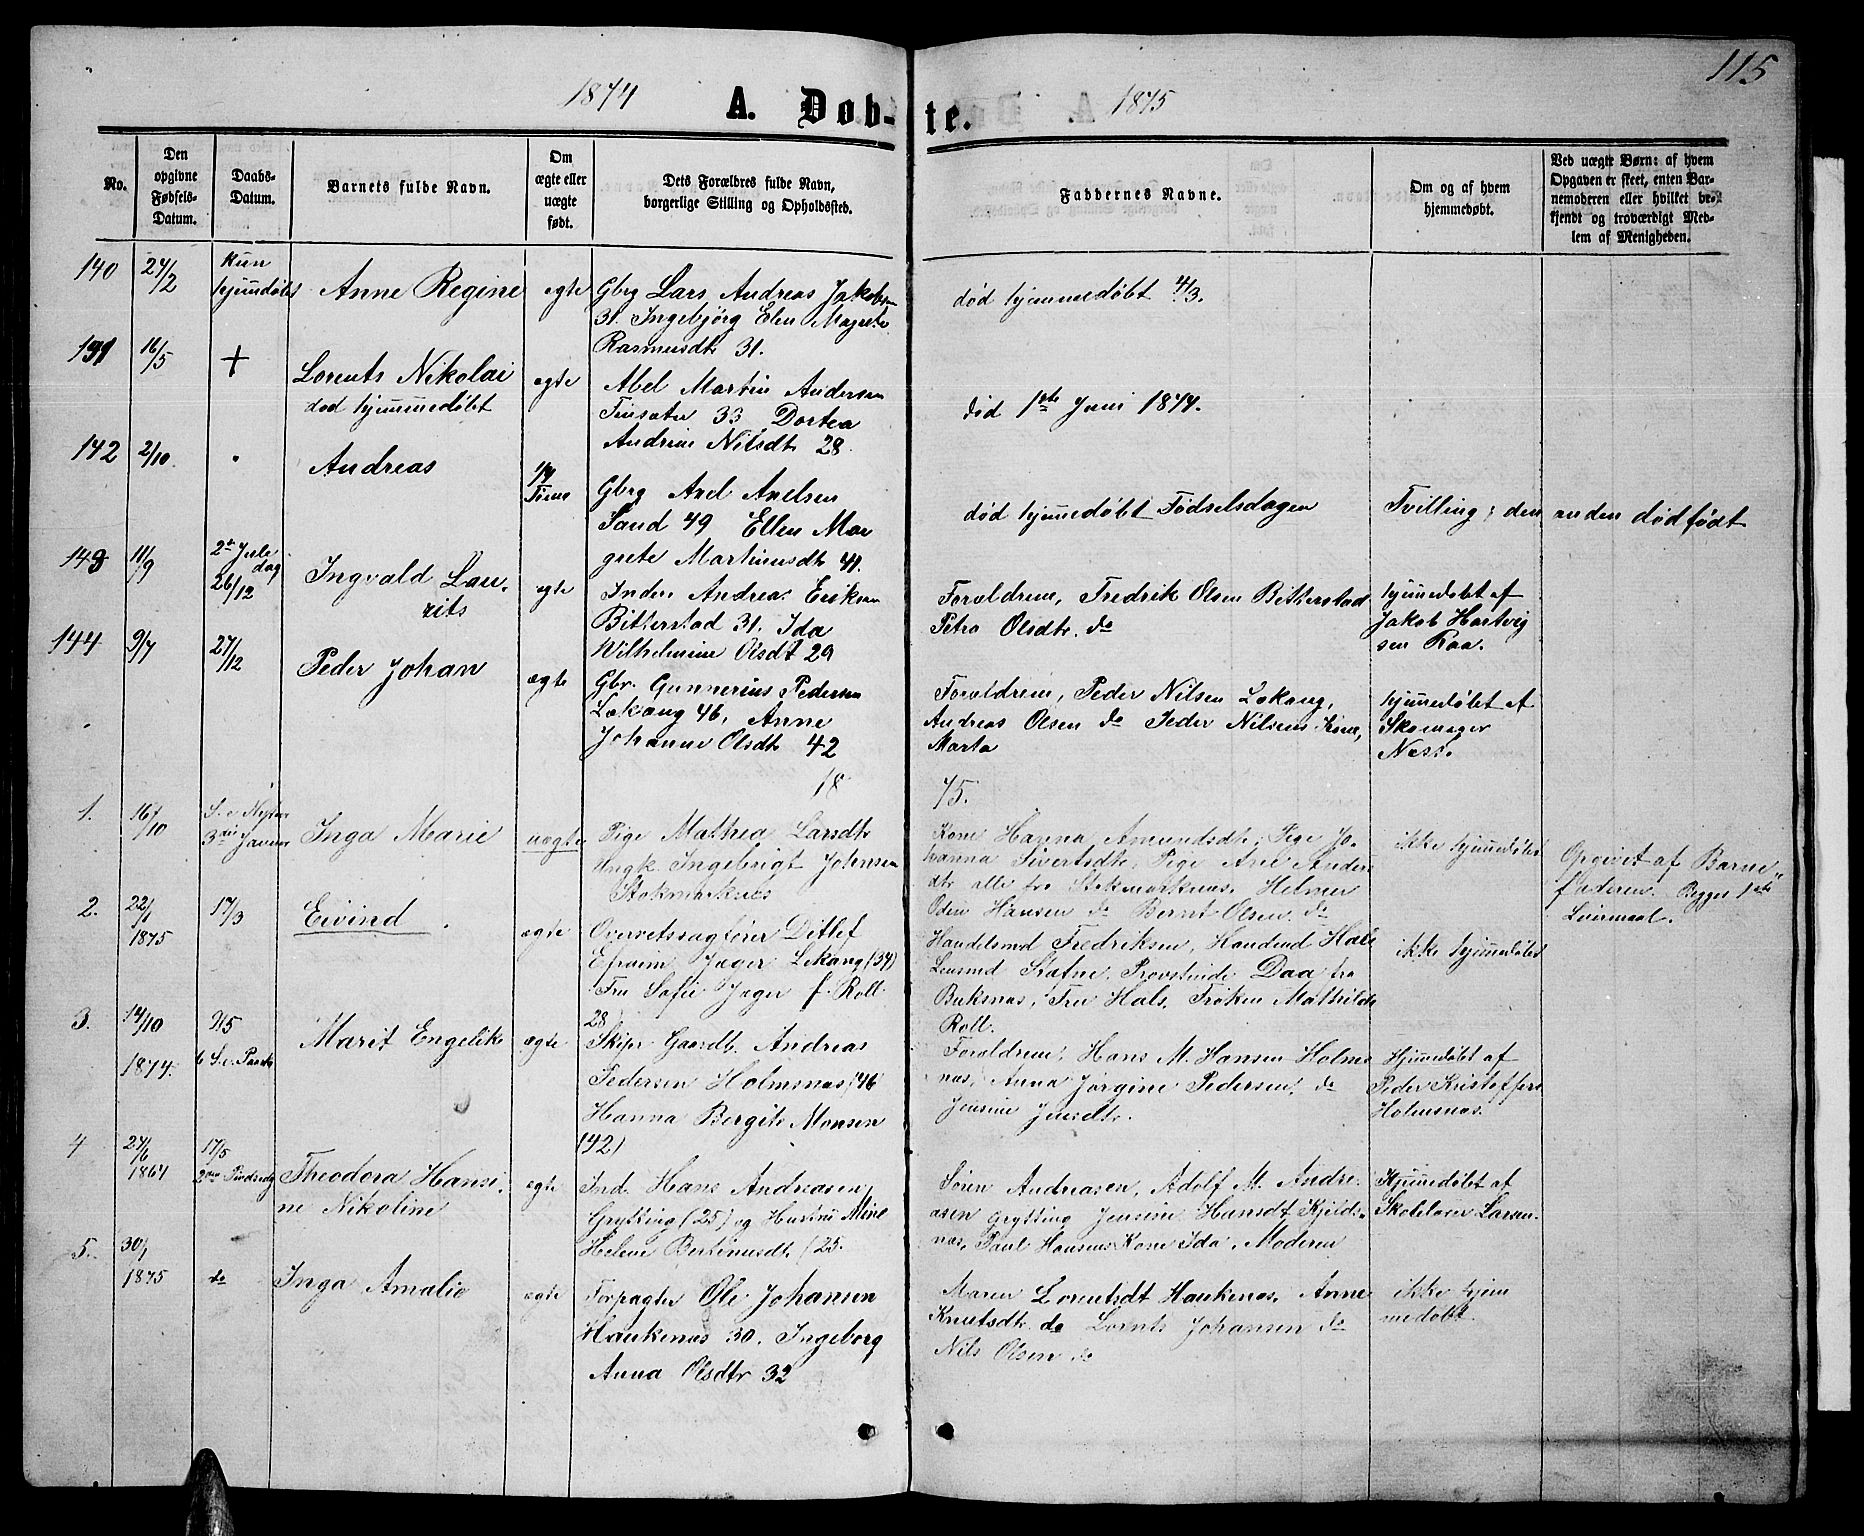 115
1874 A. Døb- te. 1875
No.
Den opgivne Fødsels-Datum.
Daabs-Datum.
Barnets fulde Navn.
Om ægte eller uægte født.
Dets Forældres fulde Navn, borgerlige Stilling og Opholdssted.
Faddernes Navne.
Om og af hvem hjemmedøbt.
Ved uægte Børn: af hvem Opgaven er skeet, enten Barnemoderen eller hvilket bekjendt og troværdigt Medlem af Menigheden.
140 24/2 kun hjemmdøbt Anne Regine egte Gbrg Lars Andreas Jakobsen
31. Ingebjörg Elen
Rasmusdt 31.
død hjemmedøbt 4/3.
141 16/5 + Lorents Nikolai
død hjemmedøbt
egte Abel Martin Andersen
33 Dortea
Nilsdt 28
død 1ste Juni 1874.
142 2/10. " Andreas
Gbrg Axel Axelsen
Sand 49 Ellen Mar
grete Martinusdt 41.
død hjemmedøbt Fødselsdagen Tvilling; den anden dødfødt
143 11/9 2den Jule
dag
26/12
Ingvald Lau-
rits
egte Inders Andreas Eriksen
Bitterstad 31. Ida
Wilhelmine Olsdt 29
Forældrene, Fredrik Olsen Bitterstad
Petra Olsdtr. do
hjemmedøbt af
Jakob Hartvig
sen Raa.
144 9/7 27/12 Peder Johan ægte Gbr. Gunnerius Pedersen
Lekang 46, Anne
Johanne Olsdt 42
Forældrene, Peder Nilsen Lekang,
Andreas Olsen do Peder Nilsens Kone,
Marta
hjemmedøbt af
Skomager
Ness.
18 75.
1. 16/10 S. e. Nytaar
3die Januar
Inga Marie uægte Pige Mathea Larsdtr
Ungk. Ingebrigt Johnsen
Stokmarknes
Kone Hanna Amundsdtr, Pige Jo-
hanna Sivertsdtr, Pige Ane Anders
dtr alle fra Stokmarknes. Helmer
Odin Hansen do Bernt Olsen do
ikke hjemmedøbt
Opgivet af Barne-
faderen. Begges 1ste
Leiermaal.
2. 22/1
1875
17/3 Eivind. ægte Overretssagfører Ditlef
Efraim Jæger Lekang (34)
Fru Sofie Jæger f. Roll
28
Handelsmd Fredriksen, Handmd Hals
Lensmd Stafne, Provstinde Daa fra
Buksnas, Fru Hals, Frøken Mathilde
Roll.
ikke hjemmedøbt
3. 14/10
1874.
2/5
6 S. e. Paaske
Marit Engelike ægte Skipr Gaardb. Andreas
Pedersen Holmsnas (46
Hanna Bergite Monsen
(42)
Forældrene, Hans M. Hansen Holms
nas, Anna Jørgine Pedersen, do
Jensine Jensdtr.
Hjemmedøbt af
Peder Kristoffers
Holmsnas.
4 24/6
1864
17/5
2den Pindsedag
Theodora Hansi-
ne Nikoline
egte Ind. Hans Andreasen
Grytting (25) og Hustru Mine
Helene Bertinusdt. (25.
Sören Andreasen, Adolf M. Andre-
asen Grytting Jensine Hansdt Kjilds-
nas, Paul Hansens Kone Ida. Moderen
Hjemmedøbt af
Skolelærer Larsen.
5. 30/1
1875
do Inga Amalie egte Forpagter Ole Johansen
Haukenas 30. Ingeborg
Anna Olsdtr 32
Maren Lorentsdt Haukenas, Anne
Knutsdt. do Lornts Johansen do
Nils Olsen do
ikke hjem
medøbt